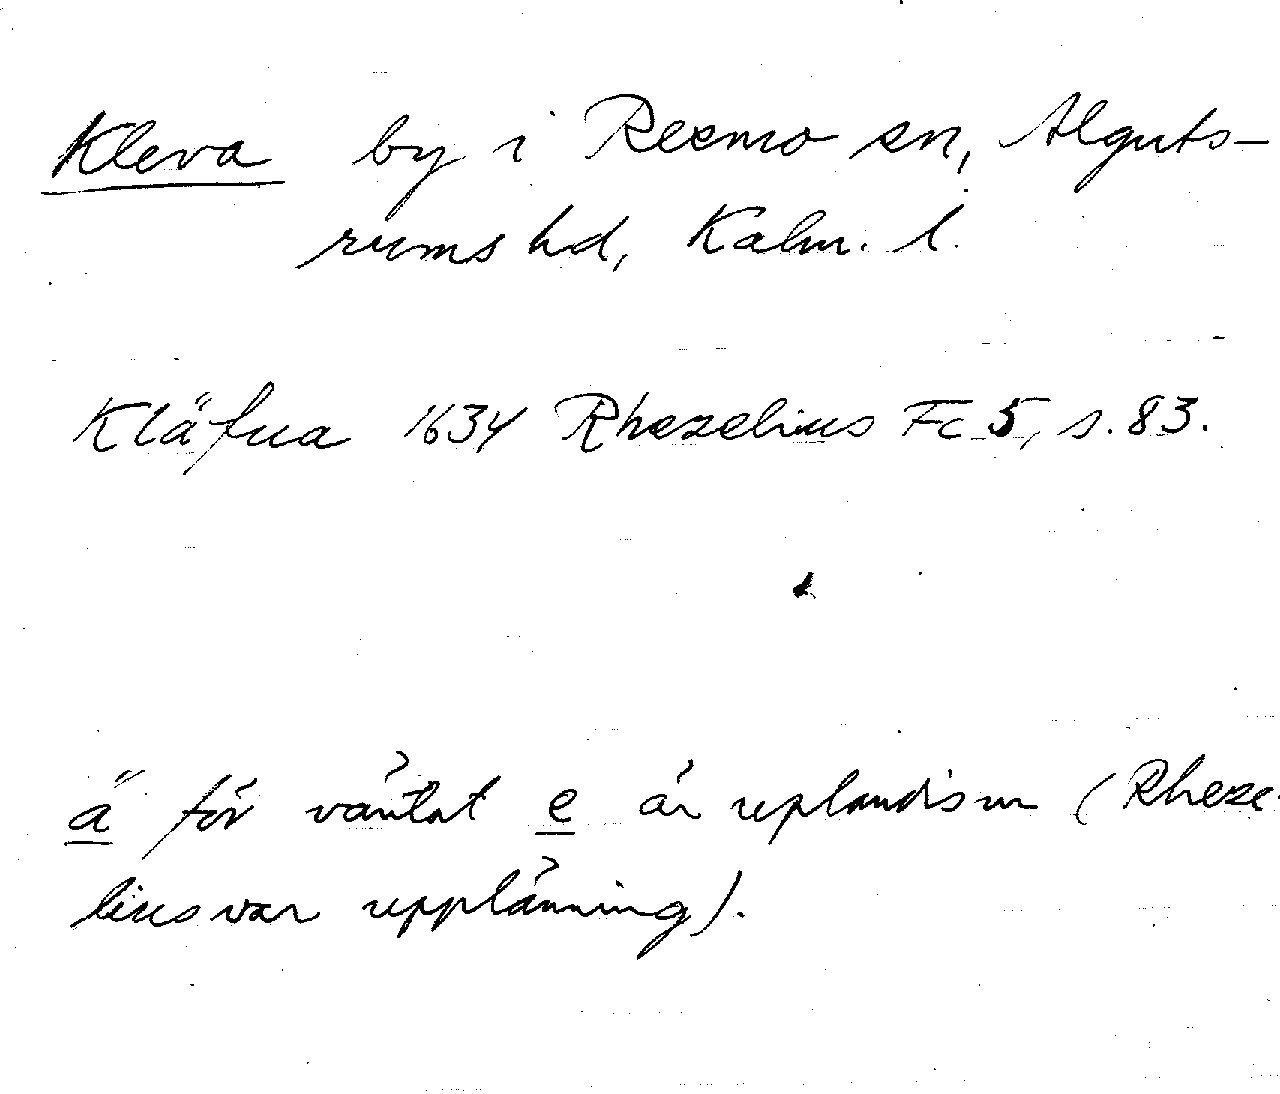 Kleva by i Resmo sn, Alguts-
rums hd, Kalm. l.
Kläfua 1634 Rhezelius Fc 5, s. 83.
ä för väntat e är uplandism (Rheze-
lius var upplänning).